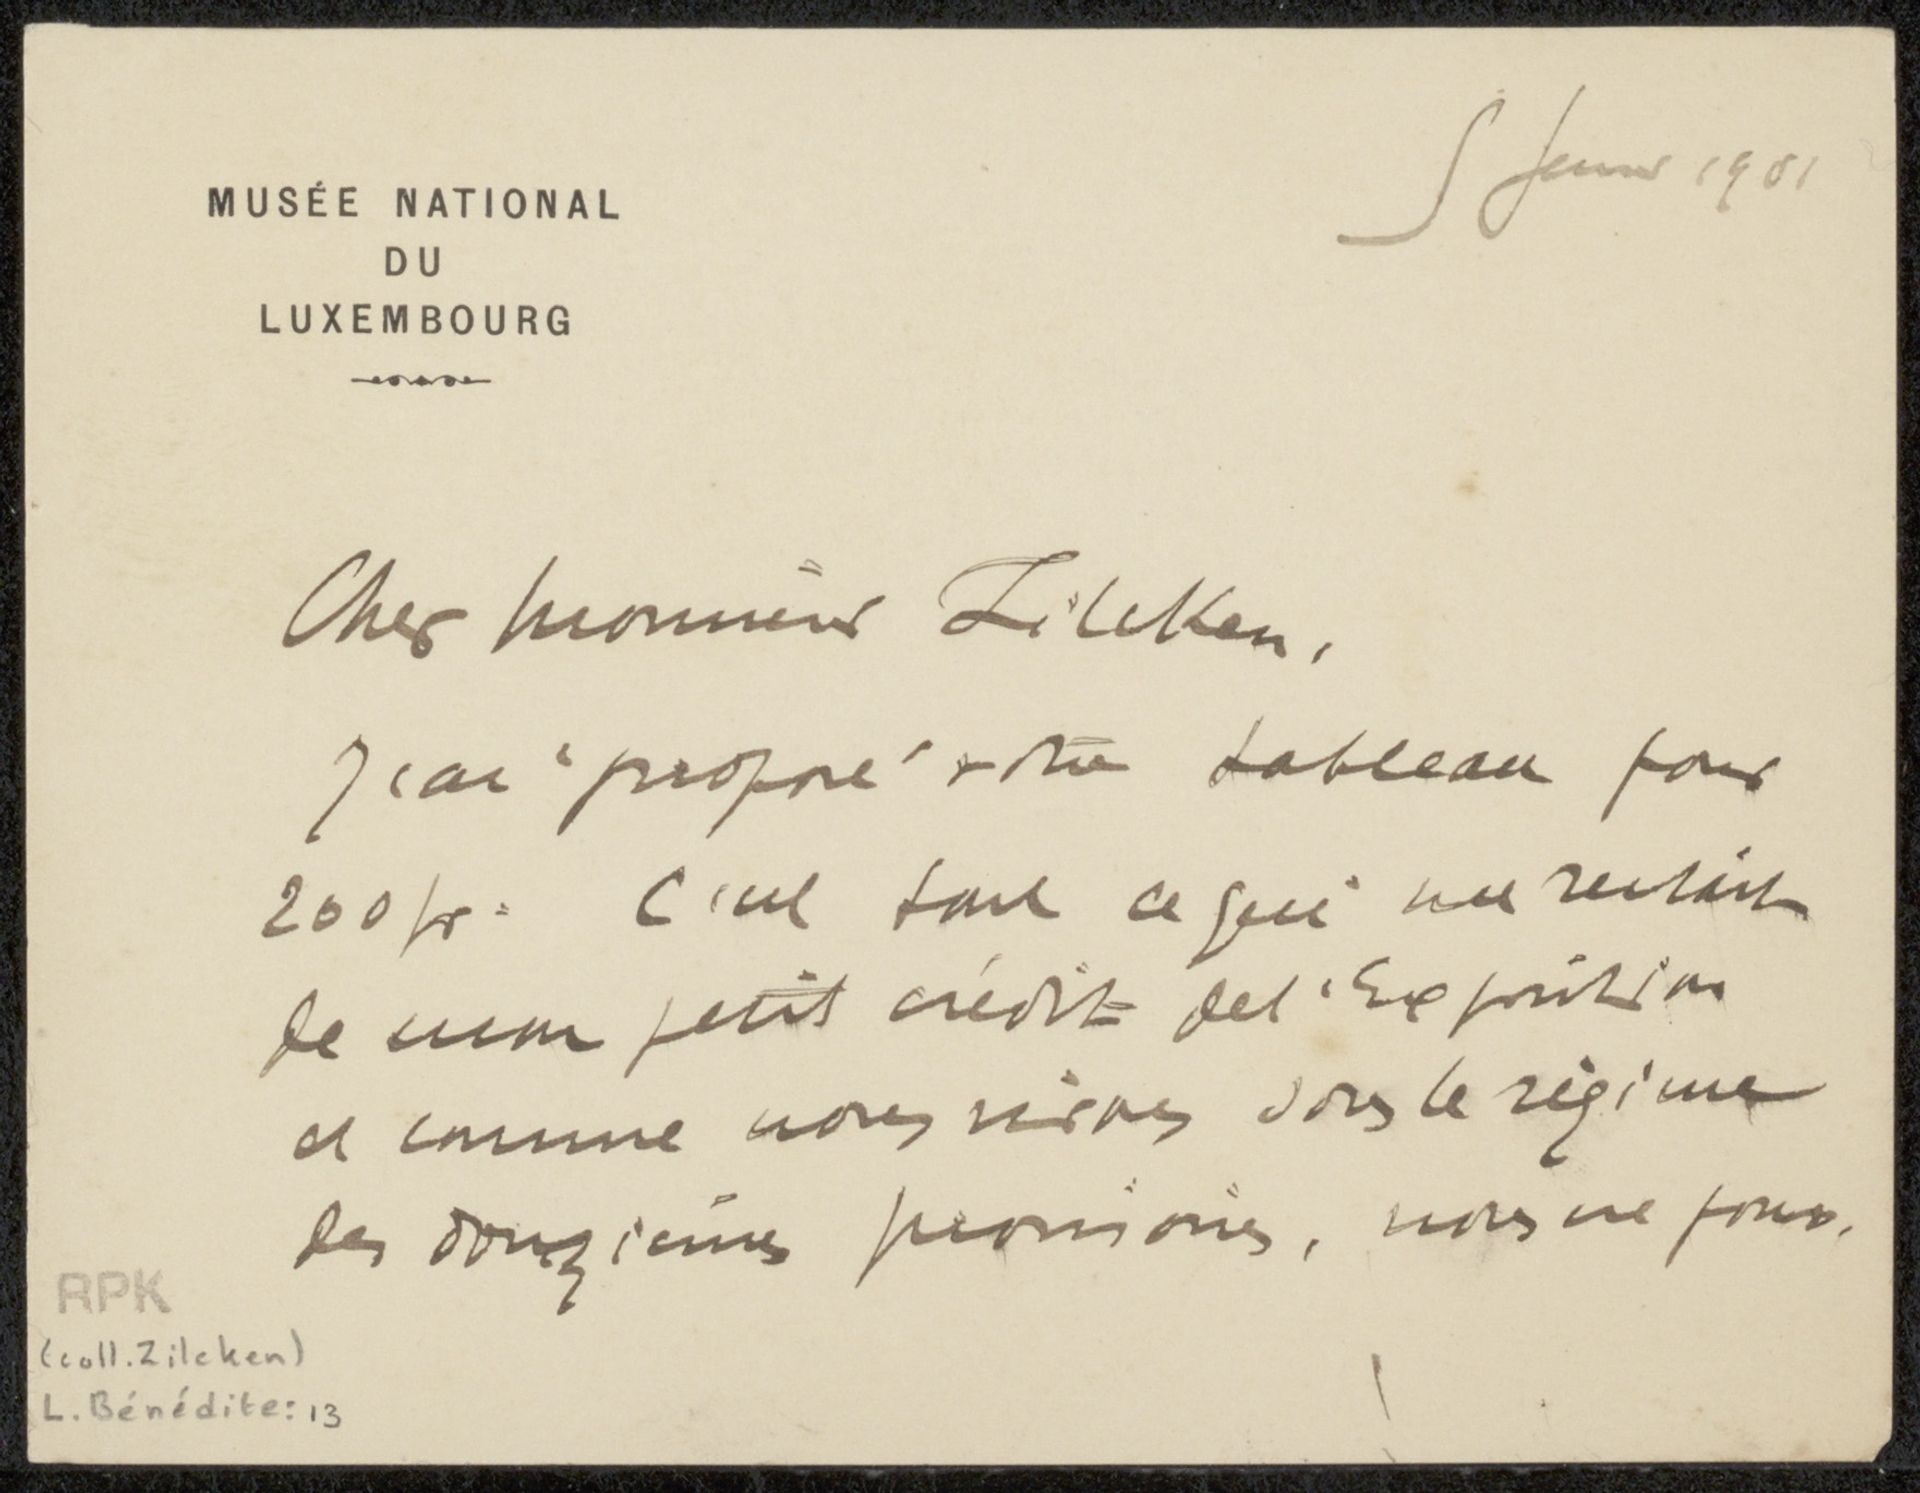 MUSÉE NATIONAL
DU
LUXEMBOURG
5 janvier 1901
Cher Monsieur Zilcken,
J'ai "proposé" votre tableau pour
200 fr. C'est tout ce qui me restait
de mon petit crédit de l'Exposition
et comme nous vivons sous le régime
des douzièmes provisoires, nous ne pouv.
RPK
(coll. Zilcken)
L. Bénédite: 13